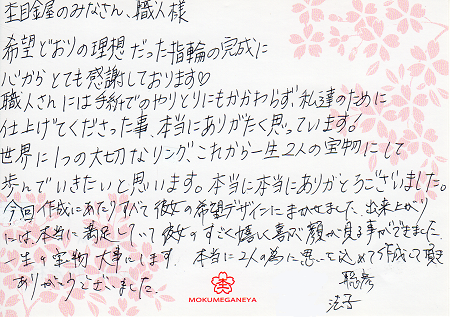 杢目金屋のみなさん、職人様
希望どおりの理想だった指輪の完成に
心からとても感謝しております♡
職人さんには手紙でのやりとりにもかかわらず、私達のために
仕上げてくださった事、本当にありがたく思っています!
世界に1つの大切なリング、これから一生2人の宝物にして
歩んでいきたいと思います。本当に本当にありがとうございました。
今回作成にあたりすべて彼女の希望デザインにまかせました。出来上がり
には、本当に満足していて彼女のすごく嬉しく喜ぶ顔が見る事ができました
一生の宝物大事にします。本当に2人の為に思いを込めて作成して頂き
ありがとうございました。
MOKUMEGANEYA